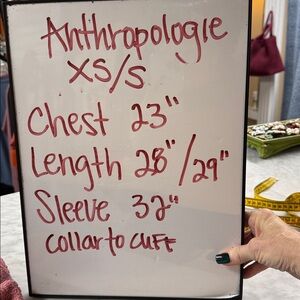 Anthropologie
XS/S
Chest 23"
Length 28"/29"
Sleeve 32"
Collar to Cuff